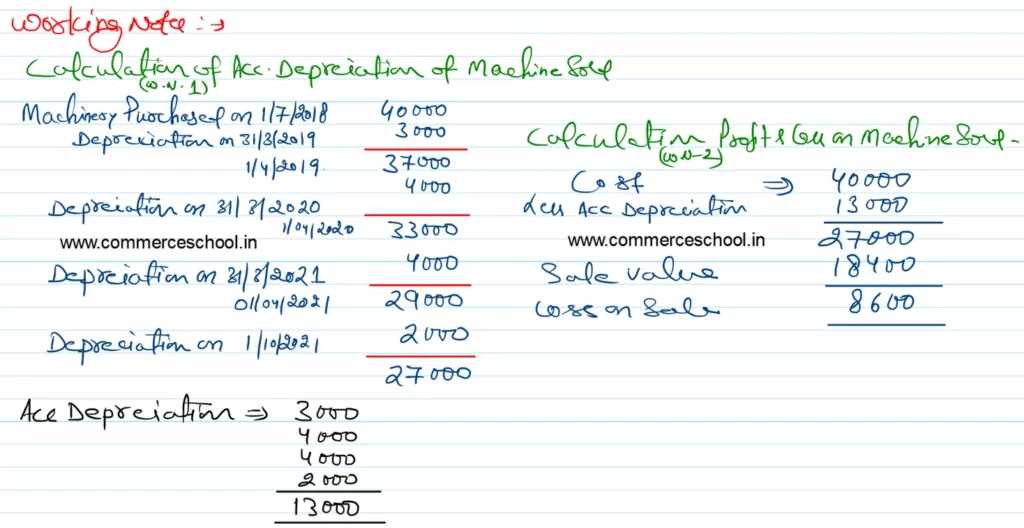 Working Note :→
Calculation of Acc. Depreciation of Machine Sold
(W.N.1)
Machinery Purchased on 1/7/2018 40000
Depreciation on 31/3/2019 3000
1/4/2019 37000
4000
Depreciation on 31/3/2020
1/04/2020 33000
www.commerceschool.in
4000
Depreciation on 31/3/2021
01/04/2021 29000
Depreciation on 1/10/2021 2000
27000
Acc Depreciation ⇒ 3000
4000
4000
2000
13000
Calculation Profit & Loss on Machine Sold -
(W.N-2)
Cost ⇒ 40000
Less Acc Depreciation 13000
www.commerceschool.in 27000
Sale value 18400
Loss on Sale 8600